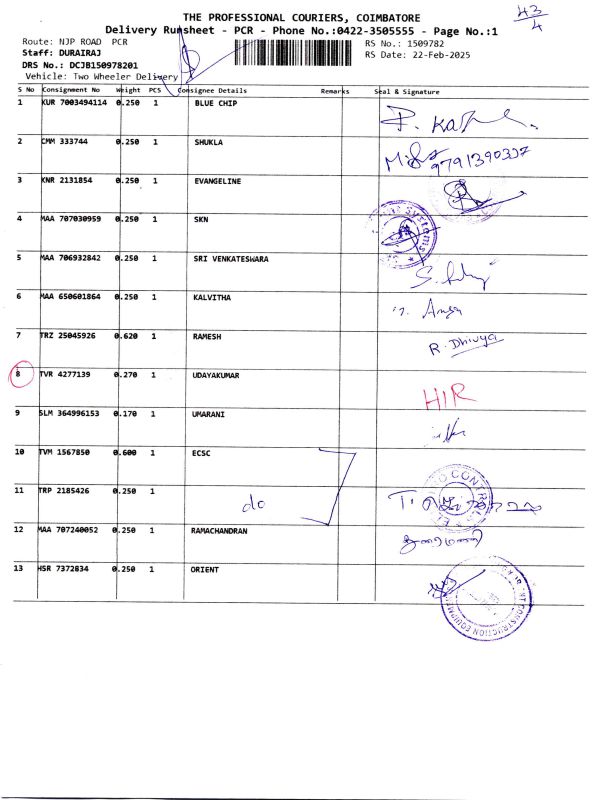 THE PROFESSIONAL COURIERS, COIMBATORE
43/4
Delivery Runsheet - PCR - Phone No.:0422-3505555 - Page No.:1
Route: NJP ROAD PCR
RS No.: 1509782
Staff: DURAIRAJ
RS Date: 22-Feb-2025
DRS No.: DCJB150978201
Vehicle: Two Wheeler Delivery
S No Consignment No Weight PCS Consignee Details Remarks Seal & Signature
1 KUR 7003494114 0.250 1 BLUE CHIP
2 CMM 333744 0.250 1 SHUKLA 9791390337
3 KNR 2131854 0.250 1 EVANGELINE
4 MAA 707030959 0.250 1 SKN Systems
5 MAA 706932842 0.250 1 SRI VENKATESWARA
6 MAA 650601864 0.250 1 KALVITHA
7 TRZ 25045926 0.620 1 RAMESH R. Dhivya
8 TVR 4277139 0.270 1 UDAYAKUMAR HIR
9 SLM 364996153 0.170 1 UMARANI
10 TVM 1567850 0.600 1 ECSC
11 TRP 2185426 0.250 1 do
12 MAA 707240052 0.250 1 RAMACHANDRAN
13 HSR 7372834 0.250 1 ORIENT
CONSTRUCTION EQUIPMENT